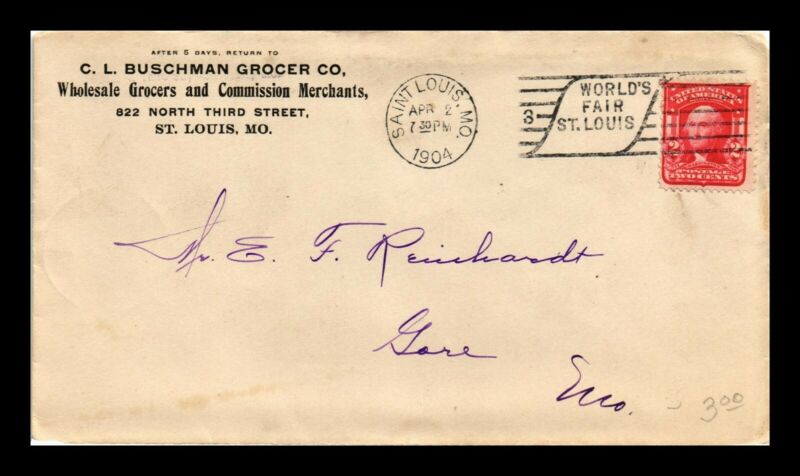 AFTER 5 DAYS, RETURN TO
C. L. BUSCHMAN GROCER CO,
Wholesale Grocers and Commission Merchants,
822 NORTH THIRD STREET,
ST. LOUIS, MO.
SAINT LOUIS, MO.
APR 2
7 30 PM
1904
3
WORLD'S
FAIR
ST. LOUIS
UNITED STATES
OF AMERICA
2 2
POSTAGE
TWO CENTS
Mr. E. F. Reinhardt.
Gore
Mo.
3.00